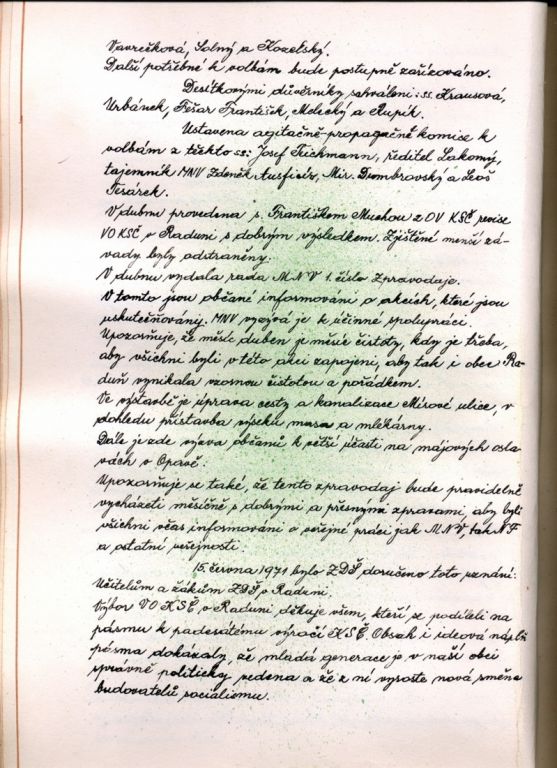 Vavrečková, Solný a Kozelský.
Další potřebné k volbám bude postupně zařizováno.
Desítkovými důvěrníky schváleni: ss. Krausová,
Urbánek, Fešar František, Melecký a Kupík.
Ustavena agitačně-propagační komise k
volbám z těchto ss: Josef Teichmann, ředitel Lakomý,
tajemník MNV Zdeněk Ausficír, Mir. Dombrovský a Leoš
Tesárek.
V dubnu provedena s. Františkem Muchou z OV KSČ revise
VO KSČ v Raduni s dobrým výsledkem. Zjištěné menší zá-
vady byly odstraněny.
V dubnu vydala rada MNV 1. číslo Zpravodaje.
V tomto jsou občané informováni o akcích, které jsou
uskutečňovány. MNV vyzývá je k účinné spolupráci.
Upozorňuje, že měsíc duben je měsíc čistoty, kdy je třeba,
aby všichni byli v této akci zapojeni, aby tak i obec Ra-
duň vynikala vzornou čistotou a pořádkem.
Ve výstavbě je úprava cesty a kanalizace Mírové ulice, v
dohledu přístavba výseku masa a mlékárny.
Dále je zde výzva občanů k větší účasti na májových osla-
vách v Opavě.
Upozorňuje se také, že tento zpravodaj bude pravidelně
vycházeti měsíčně s dobrými a přesnými zpravami, aby byli
všichni včas informováni o veřejné práci jak MNV, tak NF
a ostatní veřejnosti.
15. června 1971 bylo ZDŠ doručeno toto uznání:
Učitelům a žákům ZDŠ v Raduni.
Výbor VO KSČ v Raduni děkuje všem, kteří se podíleli na
pásmu k padesátému výročí KSČ. Obsah i ideová náplň
pásma dokázaly, že mladá generace je v naší obci
správně politicky vedena a že z ní vyroste nová směna
budovatelů socialismu.